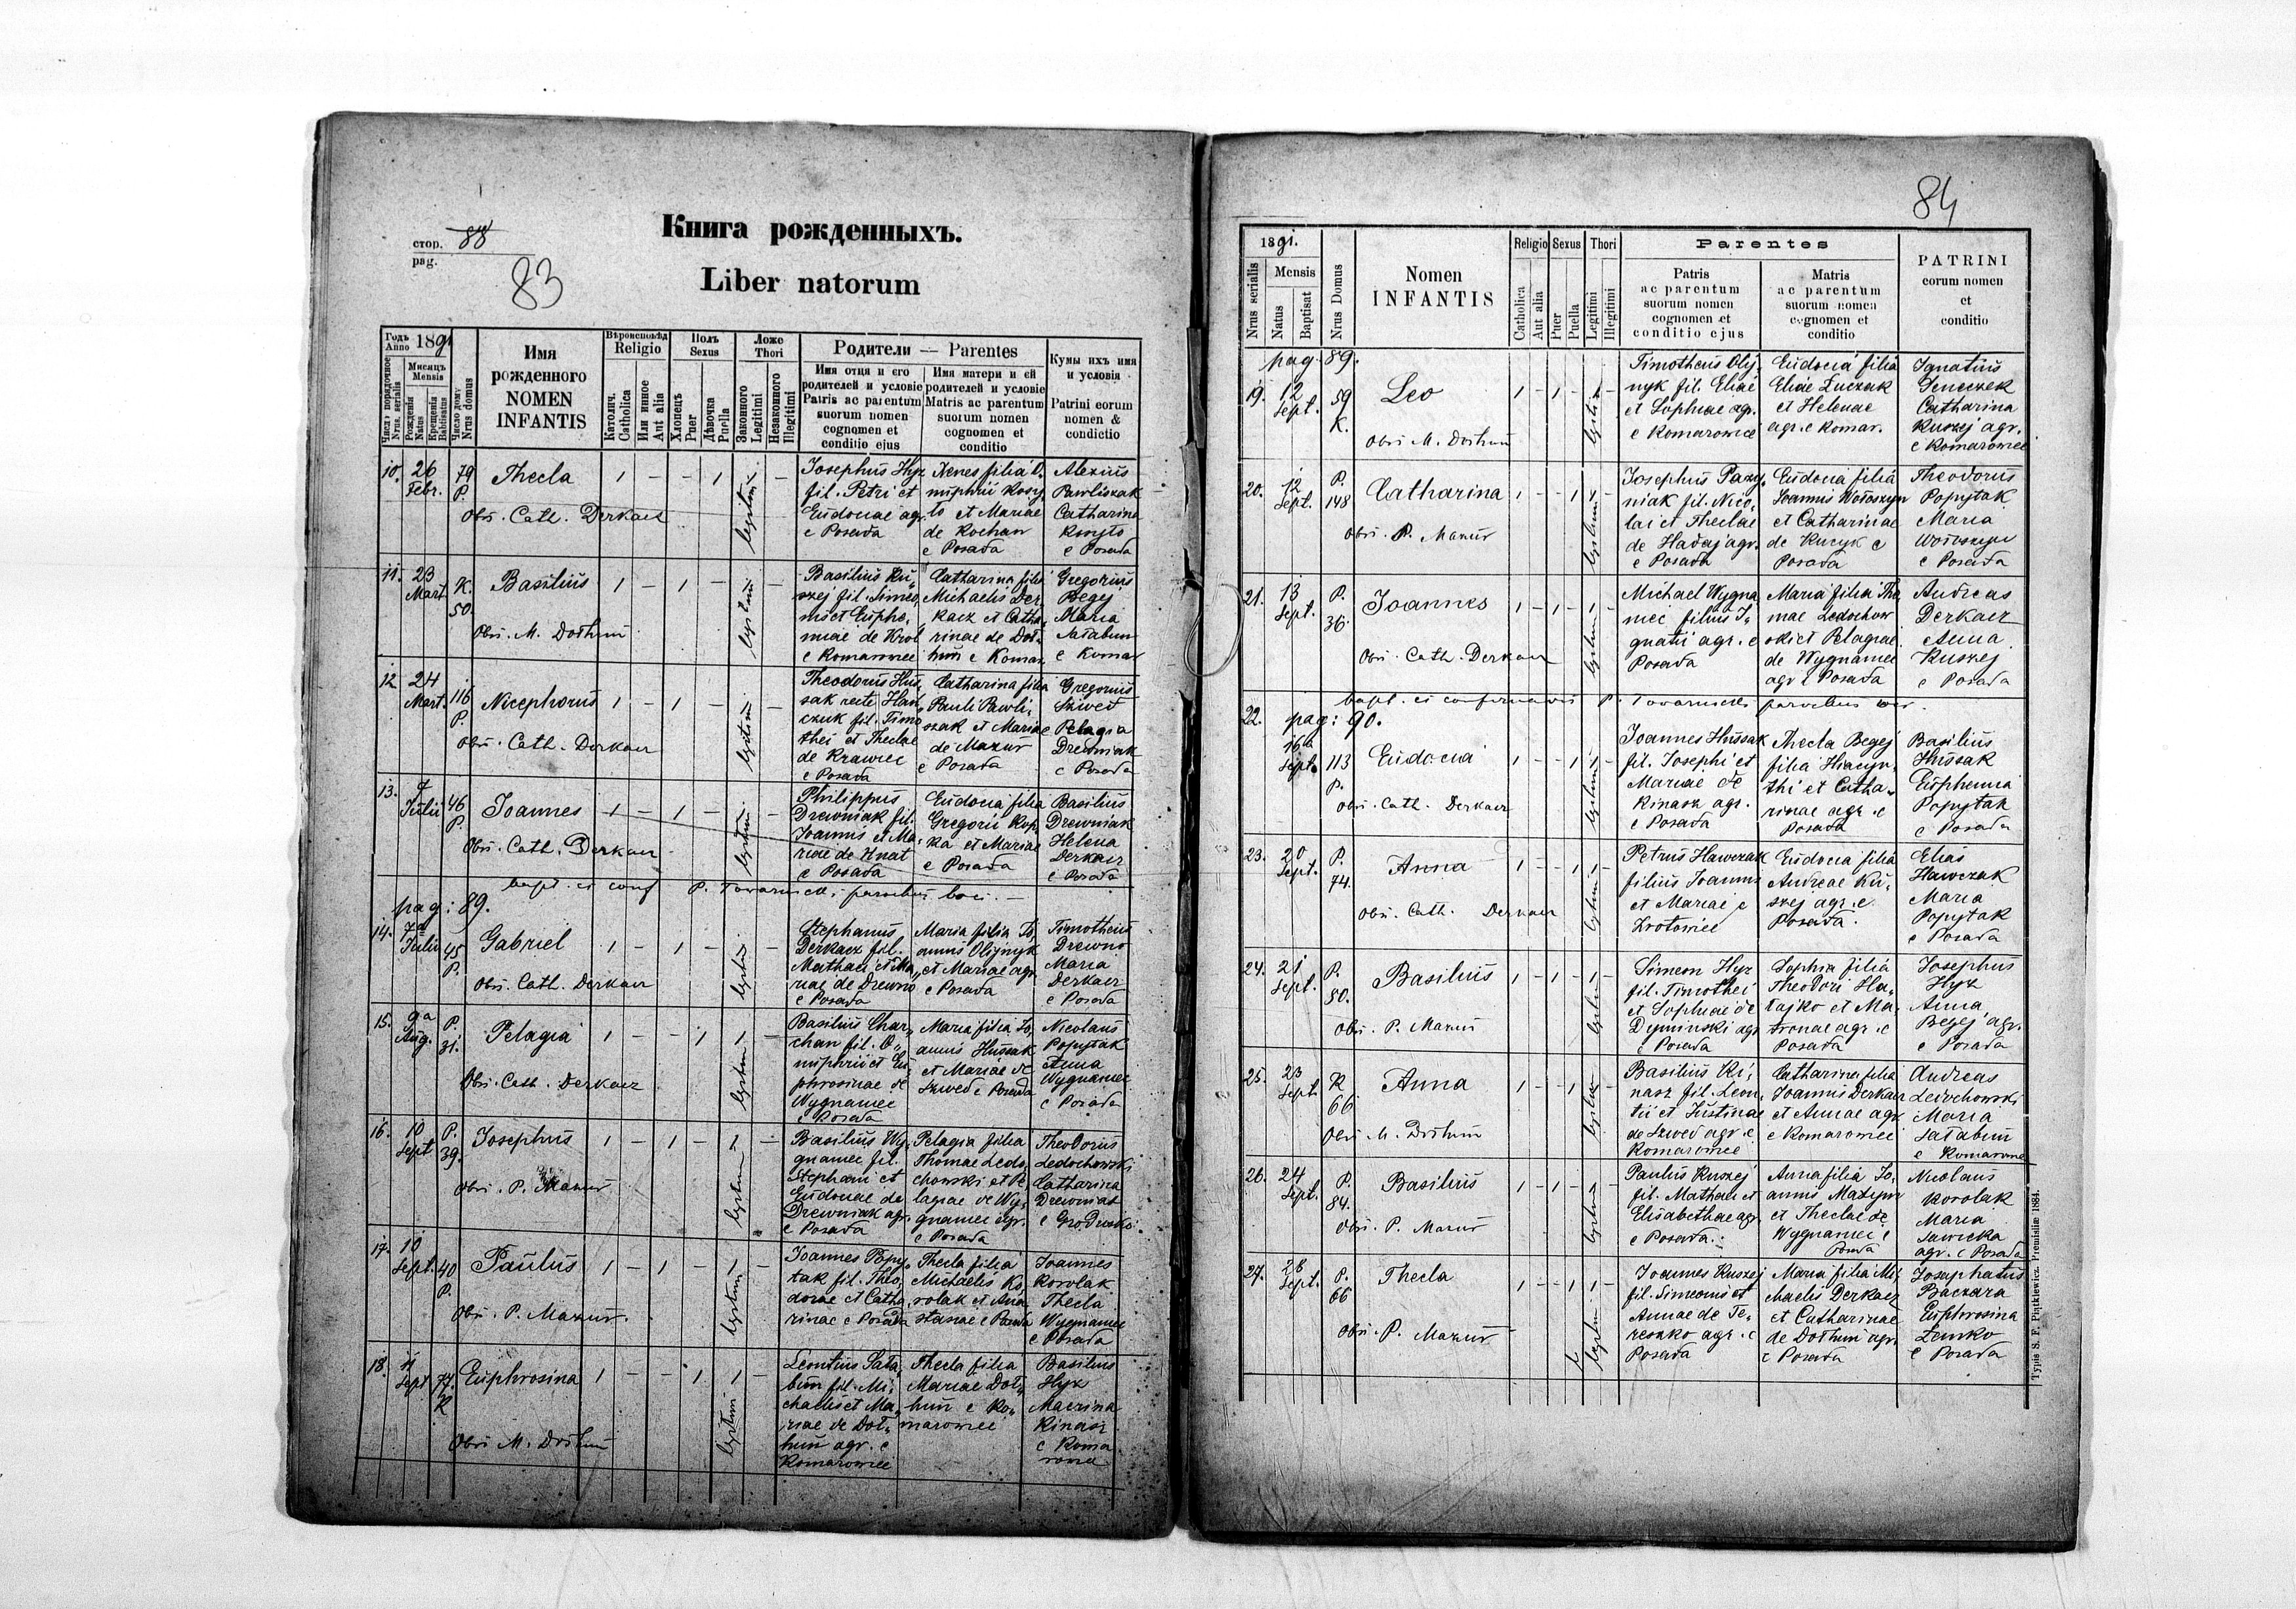 стор. 88
pag.
83
Книга рожденныхъ.
Liber natorum
Годъ Anno 1891
Числа порядочное Nrus. serialis
Мисяцъ Mensis
Рожденія Natus
Крещенія Babtisatus
Число дому Nrus domus
Имя
рожденного
NOMEN
INFANTIS
Вѣроисповѣд
Religio
Католич. Catholica
Или инное Aut alia
Полъ
Sexus
Хлопецъ Puer
Дѣвочка Puella
Ложе
Thori
Законного Legitimi
Незаконного Illegitimi
Родители — Parentes
Имя отца и его
родителей и условіе
Patris ac parentum
suorum nomen
cognomen et
conditio ejus
Имя матери и ей
родителей и условіе
Matris ac parentum
suorum nomen
cognomen et
conditio
Кумы ихъ имя
и условія
Patrini eorum
nomen &
condictio
10. 26 Febr. 79 P. Thecla 1 – – 1 legitimi –
Obs. Cath. Derkacz
Josephus Hyz
fil. Petri et
Eudociae agr.
e Posada
Xenes filia O,
nuphrii Kosy,
to et Mariae
de Kochan
e Posada
Alexius
Pawliszak
Catharina
Kosyto
e Posada
11. 23 Mart. K. 50. Basilius 1 – 1 – legitimi –
Obs. M. Dothun
Basilius Ku,
szej fil. Simeo,
nis et Euphe,
miae de Krol
e Komarowce
Catharina filia
Michaelis Der
kacz et Catha,
rinae de Dot,
hun e Komar.
Gregorius
Begej
Maria
Satabun
e Komar
12 24 Mart. 116 P. Nicephorus 1 – 1 – legitimi –
Obs. Cath. Derkacz
Theodorus Hus,
sak recte Han,
czuk fil. Timo
thei et Theclae
de Krawiec
e Posada
Catharina filia
Pauli Pawli,
szak et Mariae
de Mazur
e Posada
Gregorius
Szwed
Pelagia
Drewniak
e Posada
13. 7 Julii 46 P. Joannes 1 – 1 – legitimi –
Obs. Cath. Derkacz
Philippus
Drewniak fil.
Joannis et Ma,
riae de Hnat
e Posada
Eudocia filia
Gregorii Kop,
ka et Mariae
e Posada
Basilius
Drewniak
Helena
Derkacz
e Posada
bapt. et conf P. Towarnicki parochus loci. —
pag: 89.
14. 7a Julii 45 P. Gabriel 1 – 1 – legitimi –
Obs. Cath. Derkacz
Stephanus
Derkacz fil.
Mathaei et Ma,
riae de Drewno
e Posada
Maria filia Jo,
annis Olijnyk
et Mariae agr.
e Posada
Timotheus
Drewno
Maria
Derkacz
e Posada
15. 9a Aug. P. 31. Pelagia 1 – – 1 1 legitimi –
Obs. Cath. Derkacz
Basilius Char,
chan fil. O,
nuphrii et Eu
phrosinae de
Wygnaniec
e Posada
Maria filia Jo,
annis Hussak
et Mariae de
Szwed e Posada
Nicolaus
Popytak
Anna
Wygnaniec
e Posada
16. 10 Sept P. 39. Josephus 1 – 1 – 1 legitimi –
Obs. P. Mazur
Basilius Wy,
gnaniec fil.
Stephani et
Eudociae de
Drewniak agr.
e Posada
Pelagia filia
Thomae Ledo,
chowski et Pe
lagiae de Wy,
gnaniec agr.
e Posada
Theodorus
Ledochowski
Catharina
Drewniak
e Grodzisko
17. 10 Sept. 40 P. Paulus 1 – 1 – legitimi –
Obs. P. Mazur.
Joannes Popy,
tak fil. Theo,
dorae et Catha,
rinae e Posada
Thecla filia
Michaelis Ko,
rolak et Ana
stasiae e Posada
Joannes
Korolak
Thecla
Wygnaniec
e Posada
18. 11 Sept 77. K Euphrosina 1 – – 1 1 legitimi –
Obs M. Dothun
Leontius Sata,
bun fil. Mi,
chaelis et Ma,
riae de Dot,
hun agr. e
Komarowce
Thecla filia
Mariae Dot,
hun e Ko,
marowce
Basilius
Hyz
Macrina
Kinasz
e Koma
rowce
84
1891.
Nrus serialis
Mensis
Natus
Baptisat
Nrus Domus
Nomen
INFANTIS
Religio
Catholica
Aut alia
Sexus
Puer
Puella
Thori
Legitimi
Illegitimi
Parentes
Patris
ac parentum
suorum nomen
cognomen et
conditio ejus
Matris
ac parentum
suorum nomen
cognomen et
conditio
PATRINI
eorum nomen
et
conditio
pag. 89.
19. 12 Sept. 59 K. Leo 1 – 1 – legitimi –
Obs. M. Dothun
Timotheus Olij,
nyk fil. Eliae
et Sophiae agr.
e Komarowce
Eudocia filia
Eliae Luczak
et Helenae
agr. e Komar.
Ignatius
Seneczek
Catharina
Kuszej agr.
e Komarowce
20. 12 Sept. P. 148 Catharina 1 – – 1 legitimi –
Obs. P. Mazur
Josephus Pazy,
niak fil. Nico,
lai et Theclae
de Hadaj agr.
e Posada
Eudocia filia
Joannis Wołoszyn
et Catharinae
de Kucyk e
Posada
Theodorus
Popytak
Maria
Wołoszyn
e Posada
21. 13 Sept. P. 36. Joannes 1 – 1 – 1 legitimi –
Obs. Cath. Derkacz
Michael Wygna
niec filius I,
gnatii agr. e
Posada
Maria filia Tho
mae Ledochow
ski et Pelagiae
de Wygnaniec
agr e Posada
Andreas
Derkacz
Anna
Kuszej
e Posada
bapt. et confirmavit P. Towarnicki parochus loci.
pag: 90.
22. 16a Sept. 113 P. Eudocia 1 – – 1 legitimi –
Obs. Cath. Derkacz
Joannes Hussak
fil. Josephi et
Mariae de
Kinasz agr.
e Posada
Thecla Begej
filia Hiacyn,
thi et Catha,
rinae agr. e
Posada
Basilius
Hussak
Euphemia
Popytak
e Posada
23. 20 Sept. P. 74. Anna 1 – – 1 legitimi –
Obs. Cath. Derkacz
Petrus Hawczak
filius Joannis
et Mariae e
Zrotowice
Eudocia filia
Andreae Ku,
szej agr. e
Posada.
Elias
Hawczak
Maria
Popytak
e Posada
24. 21 Sept. P. 80. Basilius 1 – 1 – 1 legitimi –
Obs. P. Mazur
Simeon Hyz
fil. Timothei
et Sophiae de
Dyminski agr
e Posada
Sophia filia
Theodori Ha,
tajko et Ma,
tronae agr. e
Posada
Josephus
Hyz
Anna
Begej agr.
e Posada
25. 23 Sept K 66. Anna 1 – – 1 legitimi –
Obs M. Dothun
Basilius Ki,
nasz fil. Leon,
tii et Justinae
de Szwed agr. e
Komarowce
Catharina filia
Joannis Derkacz
et Annae agr
e Komarowce
Andreas
Ledochowski
Maria
Satabun
e Komarowce
26. 24 Sept. P. 84. Basilius 1 – 1 – 1 legitimi –
Obs. P. Mazur
Paulus Kuszej
fil. Mathaei et
Elisabethae agr.
e Posada.
Anna filia Jo,
annis Mazym
et Theclae de
Wygnaniec e
Posada
Nicolaus
Korolak
Maria
Sawicka
agr. e Posada
27. 26 Sept. P. 66 Thecla 1 – – 1 1 legitimi –
Obs. P. Mazur
Joannes Kuszej
fil. Simeonis et
Annae de Te,
reszko agr. e
Posada
Maria filia Mi,
chaelis Derkacz
et Catharinae
de Dothun agr.
e Posada
Josaphatus
Baczara
Euphrosina
Lemko
e Posada
Typis S. F. Piątkiewicz Premisliæ 1884.